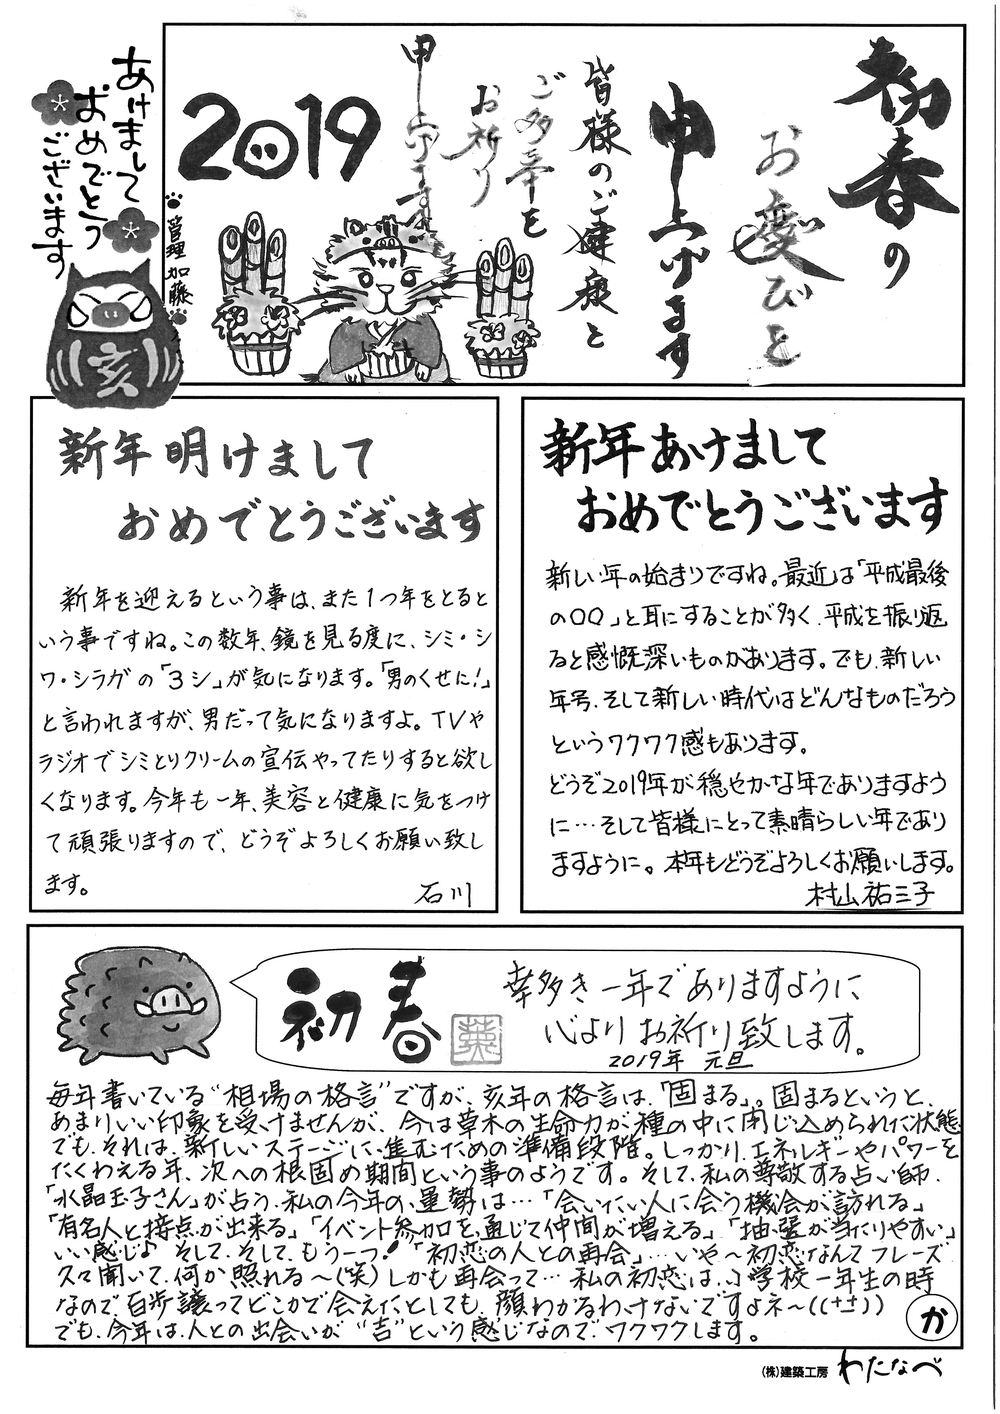 初春の
お慶びを
申し上げます
皆様のご健康と
ご多幸を
お祈り
申し上げます
2019
あけまして
おめでとう
ございます
管理 加藤
亥
新年明けまして
おめでとうございます
新年を迎えるという事は、また1つ年をとると
いう事ですね。この数年、鏡を見る度に、シミ・シ
ワ・シラガの「3シ」が気になります。「男のくせに!」
と言われますが、男だって気になりますよ。TVや
ラジオでシミとりクリームの宣伝やってたりすると欲し
くなります。今年も一年、美容と健康に気をつけ
て頑張りますので、どうぞよろしくお願い致し
ます。
石川
新年あけまして
おめでとうございます
新しい年の始まりですね。最近は「平成最後
の〇〇」と耳にすることが多く、平成を振り返
ると感慨深いものがあります。でも、新しい
年号、そして新しい時代はどんなものだろう
というワクワク感もあります。
どうぞ2019年が穏やかな年でありますよう
に…そして皆様にとって素晴らしい年であり
ますように。本年もどうぞよろしくお願いします。
村山祐三子
初春
幸多き一年でありますように
心よりお祈り致します。
2019年 元旦
毎年書いている"相場の格言"ですが、亥年の格言は、「固まる」。固まるというと、
あまりいい印象を受けませんが、今は草木の生命力が、種の中に閉じ込められた状態
でも、それは、新しいステージに、進むための準備段階。しっかり、エネルギーやパワーを
たくわえる年、次への根固め期間という事のようです。そして、私の尊敬する占い師、
「水晶玉子さん」が占う、私の今年の、運勢は…「会いたい人に会う機会が訪れる」
「有名人と接点が出来る」「イベント参加を通じて仲間が増える」「抽選が当たりやすい」
いい感じ♪ そして、そして、もう一つ!「初恋の人との再会」…いや〜初恋なんてフレーズ
久々聞いて、何か照れる〜(笑)しかも再会って…私の初恋は、小学校一年生の時
なので、百歩譲ってどこかで会えたとしても、顔わかるわけないですよネ〜((+_+))
でも、今年は、人との出会いが"吉"という感じなので、ワクワクします。
か
(株)建築工房 わたなべ